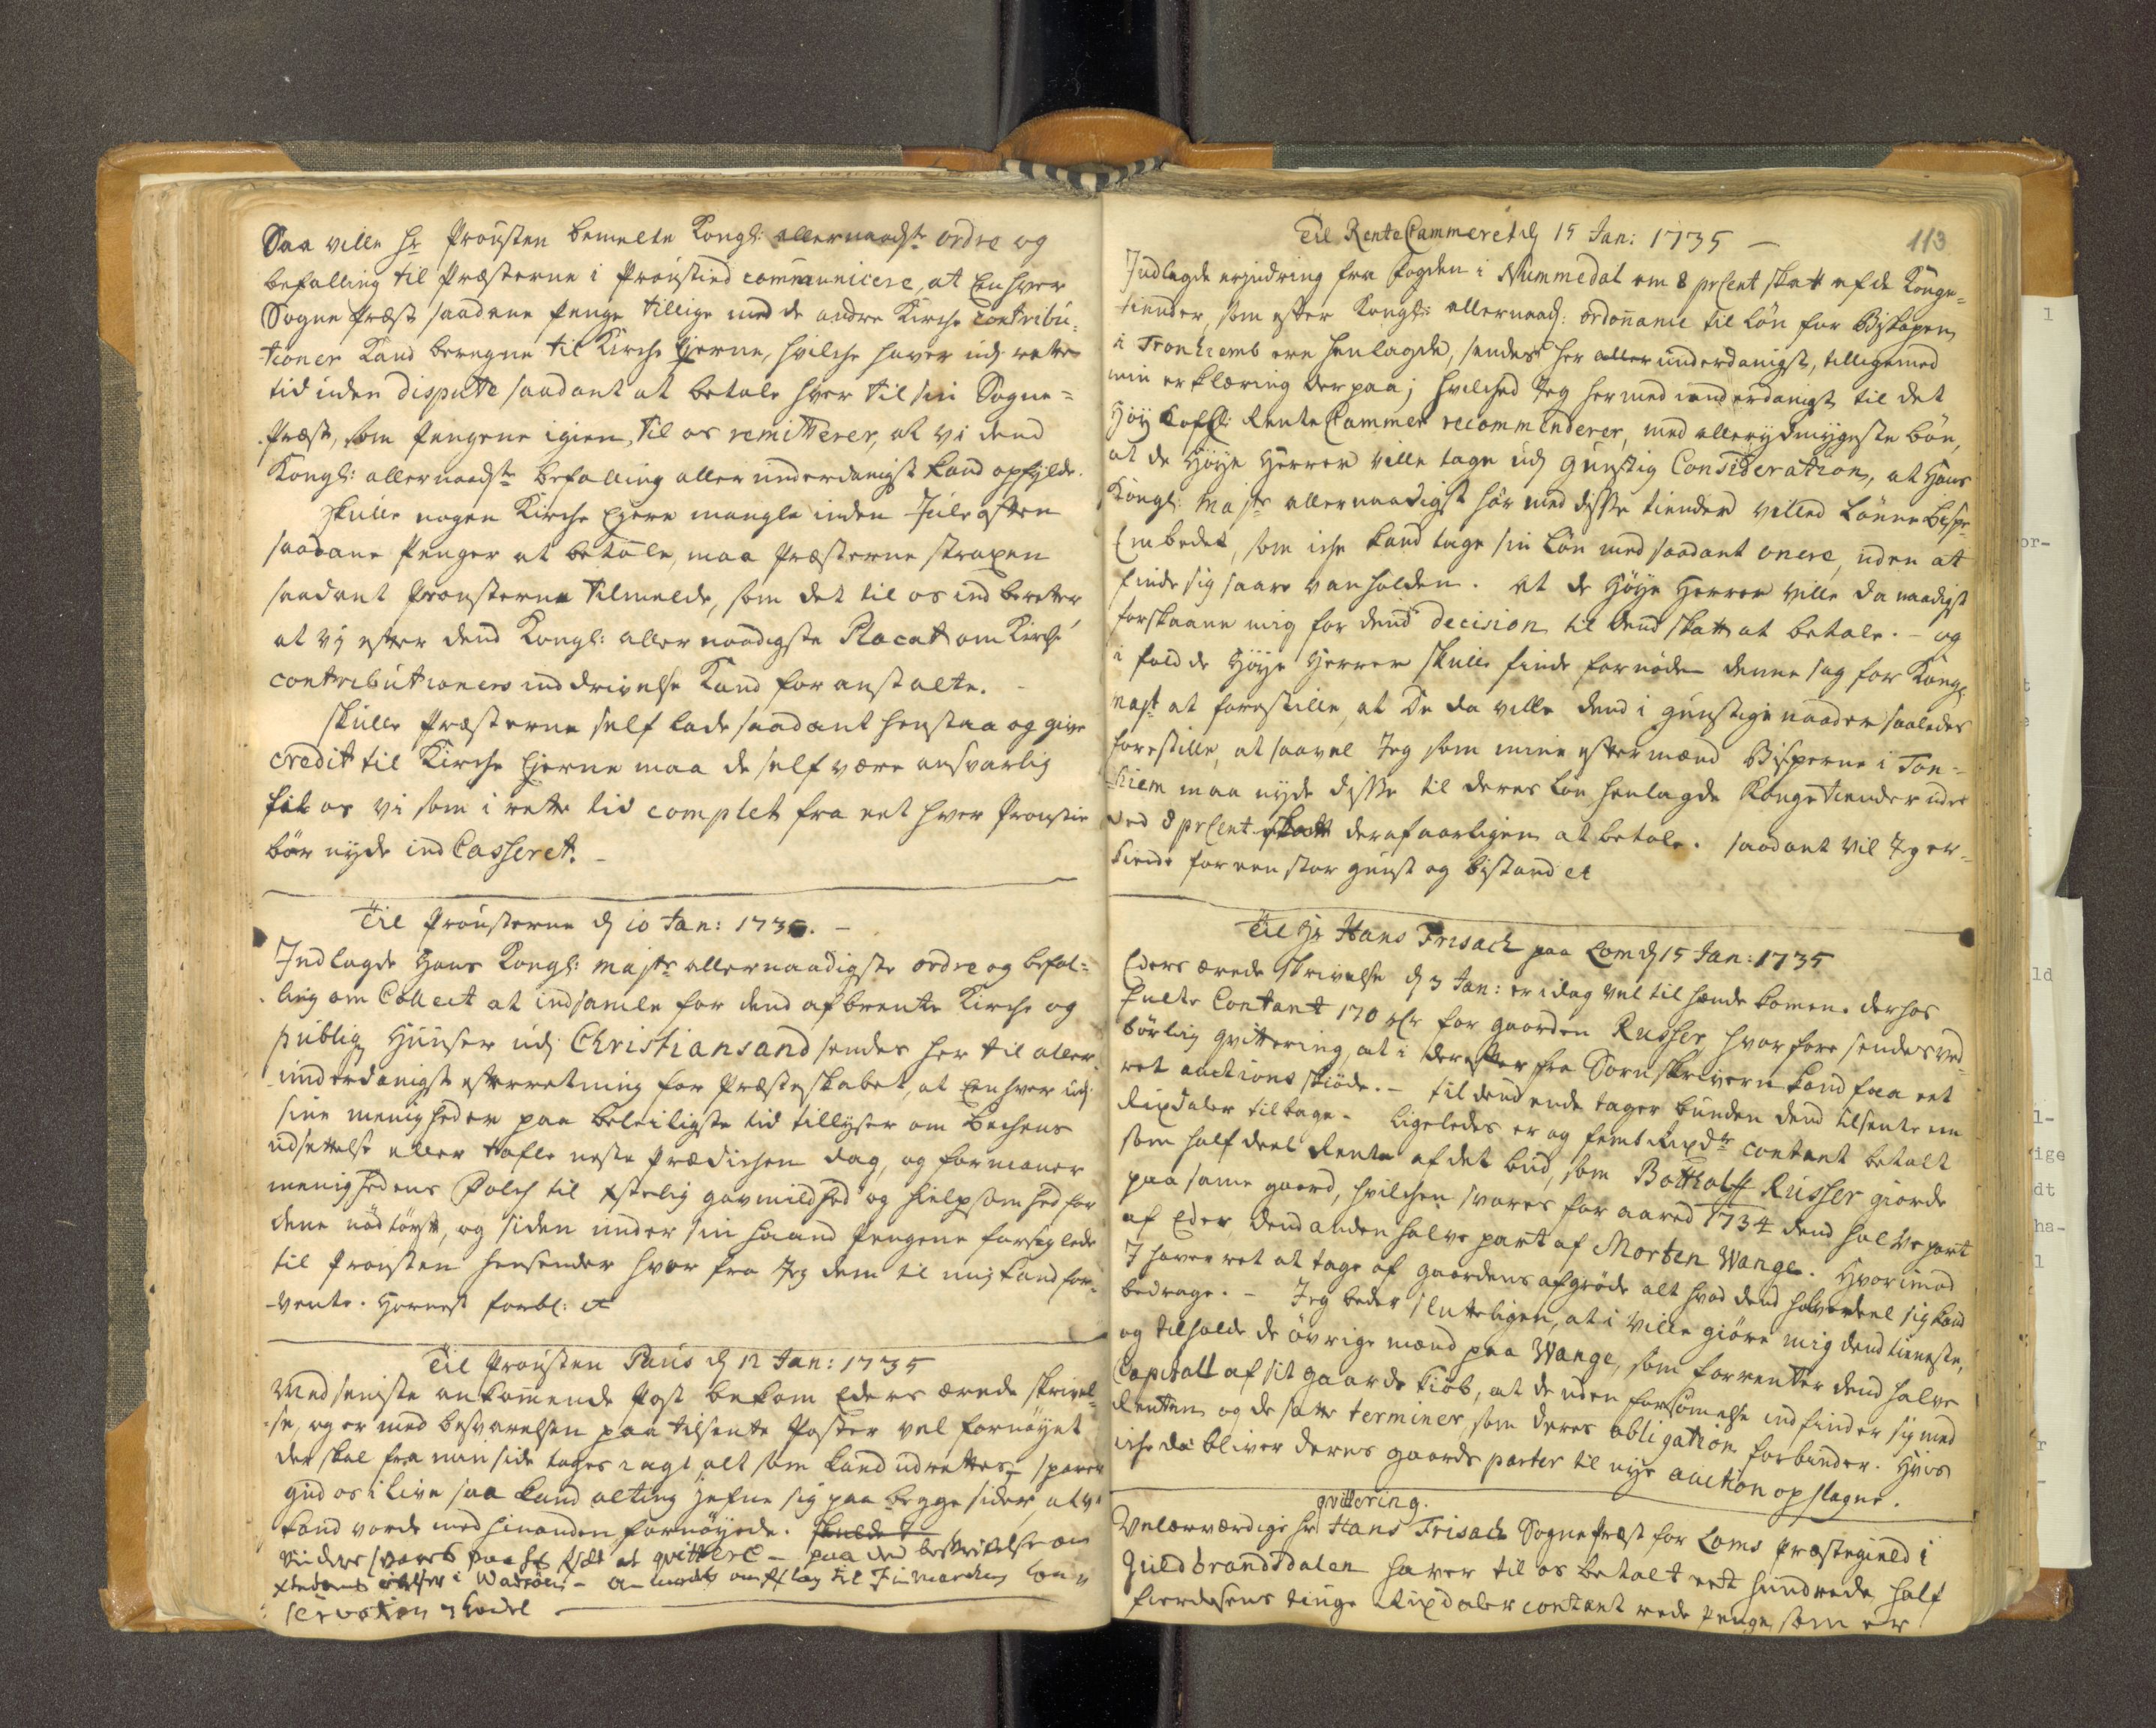 Saa ville Hr Prousten bemelte Kongl: allernaadste ordre og
befalling til Præsterne i Proustied communicere, at Enhver
Sogne Præst saadane Penge tillige med de andre Kirche contribu-
tioner kand beregne til Kirche Ejerne, hvilche haver udj rette
tid inden dispute saadant at betale hver til sin Sogne-
Præst, som Pengene igien til os remitterer, at vi dend
Kongl: allernaadste befalling allerunderdanigst kand opfylde.
Skulle nogen Kirche Ejere mangle inden Juleaften
saadane Penger at betale, maa Præsterne straxen
saadant Prousterne tilmelde, som det til os indberetter,
at vj efter dend Kongl: allernaadigste Placat om Kirche
contributioners inddrivelse kand foranstalte. -
Skulle Præsterne self lade saadant henstaa og give
credit til Kirche Ejerne maa de self være ansvarlig
til os vi som i rette tid complet fra ret hver Proustie
bør nyde ind Casseret. -
Til Prousterne dj 10 Jan: 1735. -
Indlagde Hans Kongl: Majts allernaadigste ordre og befal-
ling om Collect at indsamle for dend afbrente Kirche og
publiq Huuser udj Christiansand sendes her til aller-
underdanigst efterretning for Præsteskabet, at Enhver udj
sine menigheder paa beleiligste tid tillyser om Bechens
udsettelse eller tafle neste Prædichen dag, og formaner
menighedens Folch til Xstelig gavmildhed og hielpsomhed for
dene nødtørft, og siden under sin haand Pengene forseglede
til Prousten hensender hvor fra Jeg dem til mig kand for-
vente. Hernest forbl: etc
Til Prousten Paus dj 12 Jan: 1735
Med seniste ankommende Post bekom Eders ærede skrivel-
se, og er med besvarelsen paa tilsente Poster vel fornøyet
der skal fra min side tages i agt alt som kand udrettes - sparer
gud os i live saa kand alting jefne sig paa begge sider, at vi
kand vorde med hinanden fornøyede.
at qvittere - paa
i Wadsøen -
113
Til RenteCammeret dj 15 Jan: 1735 -
Indlagde erindring fra Fogden i Nummedal om 8 prCent skatt af de Konge-
tiender, som efter Kongl: allernaadj: ordonance til Løn for Biskopen
i Tronhiemb ere henlagde, sendes her allerunderdanigst, tilligemed
min erklæring derpaa; hvilched Jeg hermed underdanigst til det
Høy Loflj: Rente Cammer recommenderer, med allerydmygeste bøn,
at de Høye Herrer ville tage udj gunstig Consideration, at Hans
Kongl: Majts allernaadigst har med disse tiender villed Lønne bispe
Embedet, som iche kand tage sin Løn med saadant onere, uden at
finde sig saare vanholden. At de Høye Herrer ville da naadigst
forskaane mig for dend decision til dend skatt at betale. - og
i fald de Høye Herrer skulle finde fornøden denne sag for Kongl
Majt at forestille, at De da ville dend i gunstige naader saaledes
forestille, at saavel Jeg som mine eftermænd Bisperne i Ton-
hiem maa nyde disse til deres Løn henlagde Kongetiender uden
ved 8 prCent skatt deraf aarligen at betale. Saadant vil Jeg er-
kiende for een stor gunst og bistand etc
Til Hr Hans Frisach paa Lom dj 15 Jan: 1735
Eders ærede skrivelse dj 3 Jan: er idag vel til hænde komen. derhos
fulte Contant 170 rdr for gaarden Russer hvorfore sendes ved
børlig qvittering, at i derefter fra Sornskrivern kand faa ret
ret auctions skiøde. - til dend ende tager bunden dend tilsente en
Rixdaler tilbage. ligeledes er og femb Rixdr contant betalt
som half deel Rente af det bud, som Bottholff Russer giorde
paa same gaard, hvilchen svares for aared 1734 dend halve part
af Eder, dend anden halve part af Morten Wange. Hvorimod
I haver ret at tage af gaardens afgrøde alt hvad dend halvedeel sig kand
bedrage. - Jeg beder slutteligen, at i ville giøre mig dend tieneste,
og tilholde de øvrige mænd paa Wange, som forrenter dend halve
Capitall af sit gaards kiøb, at de uden forsømelse indfinder sig med
Renten og de satte terminer, som deres obligation forbinder. Hvis
iche da bliver deres gaards parter til nye auction opslagne.
qvittering.
Velærværdige Hr Hans Frisach Sogne Præst for Loms Præstegield i
Guldbrandsdalen haver til os betalt eet hundrede half
fierdesens tiuge Rixdaler contant rede Penge, som er